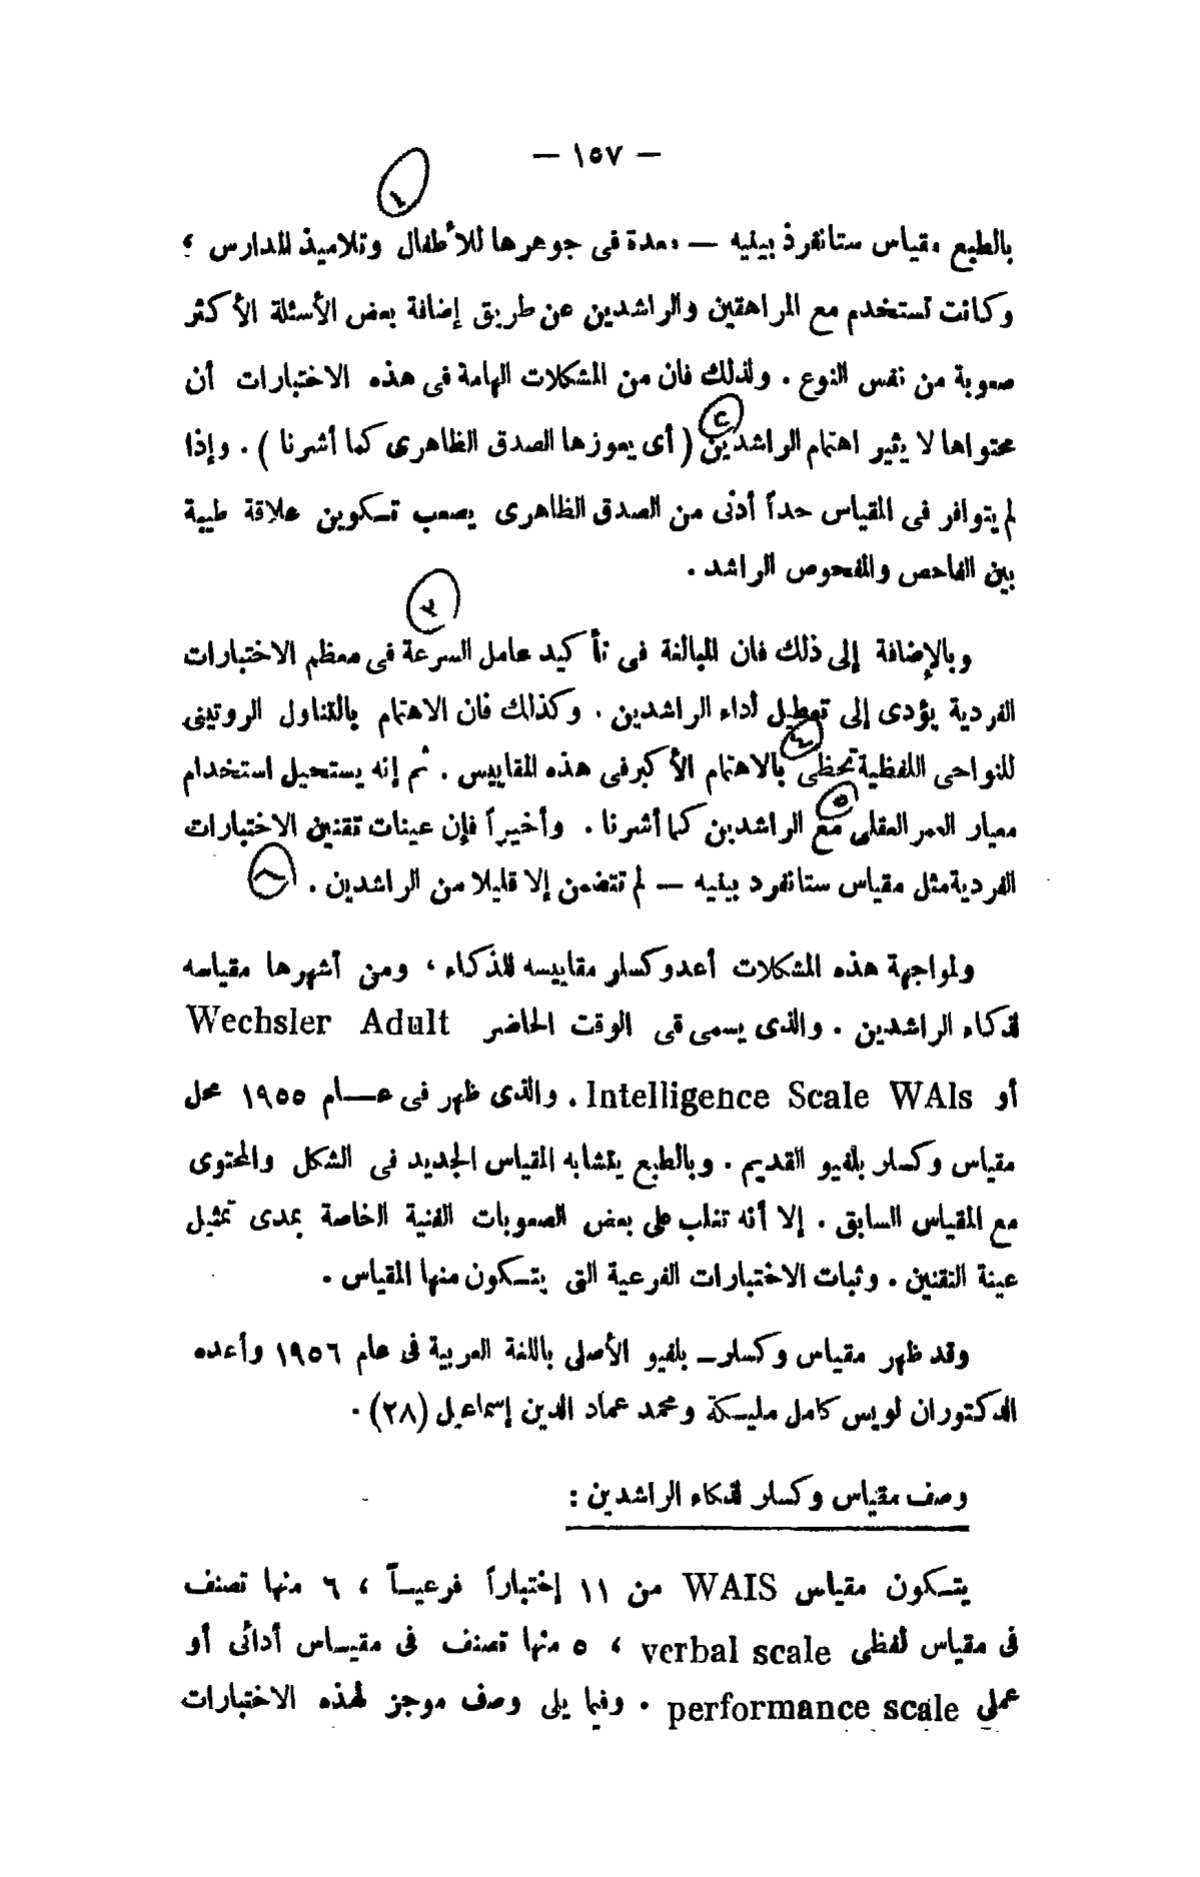 — ١٥٧ —
١
بالطبع مقياس ستانفرذ بينيه — معدة فى جوهرها للأطفال وتلاميذ المدارس ؛
وكانت تستخدم مع المراهقين والراشدين عن طريق إضافة بعض الأسئلة الأكثر
صعوبة من نفس النوع . ولذلك فان من المشكلات الهامة فى هذه الاختبارات أن
٢
محتواها لا يثير اهتمام الراشدين ( أى يعوزها الصدق الظاهرى كما أشرنا ) . وإذا
لم يتوافر فى المقياس حداً أدنى من الصدق الظاهرى يصعب تكوين علاقة طيبة
بين الفاحص والمفحوص الراشد .
٣
وبالإضافة إلى ذلك فان المبالغة فى تأكيد عامل السرعة فى معظم الاختبارات
الفردية يؤدى إلى تعطيل أداء الراشدين . وكذلك فان الاهتمام بالتناول الروتينى
٤
للنواحى اللفظية تحظى بالاهتمام الأكبر فى هذه المقاييس . ثم إنه يستحيل استخدام
٥
معيار العمر العقلى مع الراشدين كما أشرنا . وأخيراً فإن عينات تقنين الاختبارات
الفردية مثل مقياس ستانفرد بينيه — لم تتضمن إلا قليلا من الراشدين .
ولمواجهة هذه المشكلات أعد وكسلر مقاييسه للذكاء ، ومن أشهرها مقياسه
لذكاء الراشدين . والذى يسمى فى الوقت الحاضر Wechsler Adult
أو Intelligence Scale WAIs . والذى ظهر فى عــام ١٩٥٥ محل
مقياس وكسلر بلفيو القديم . وبالطبع يتشابه المقياس الجديد فى الشكل والمحتوى
مع المقياس السابق . إلا أنه تغلب على بعض الصعوبات الفنية الخاصة بمدى تمثيل
عينة التقنين . وثبات الاختبارات الفرعية التى يتكون منها المقياس .
وقد ظهر مقياس وكسلر— بلفيو الأصلى باللغة العربية فى عام ١٩٥٦ وأعده
الدكتوران لويس كامل مليكة ومحمد عماد الدين إسماعيل (٢٨) .
وصف مقياس وكسلر لذكاء الراشدين :
يتكون مقياس WAIS من ١١ إختباراً فرعيـاً ، ٦ منها تصنف
فى مقياس لفظى verbal scale ، ٥ منها تصنف فى مقيـاس أدائى أو
عملى performance scale . وفيما يلى وصف موجز لهذه الاختبارات